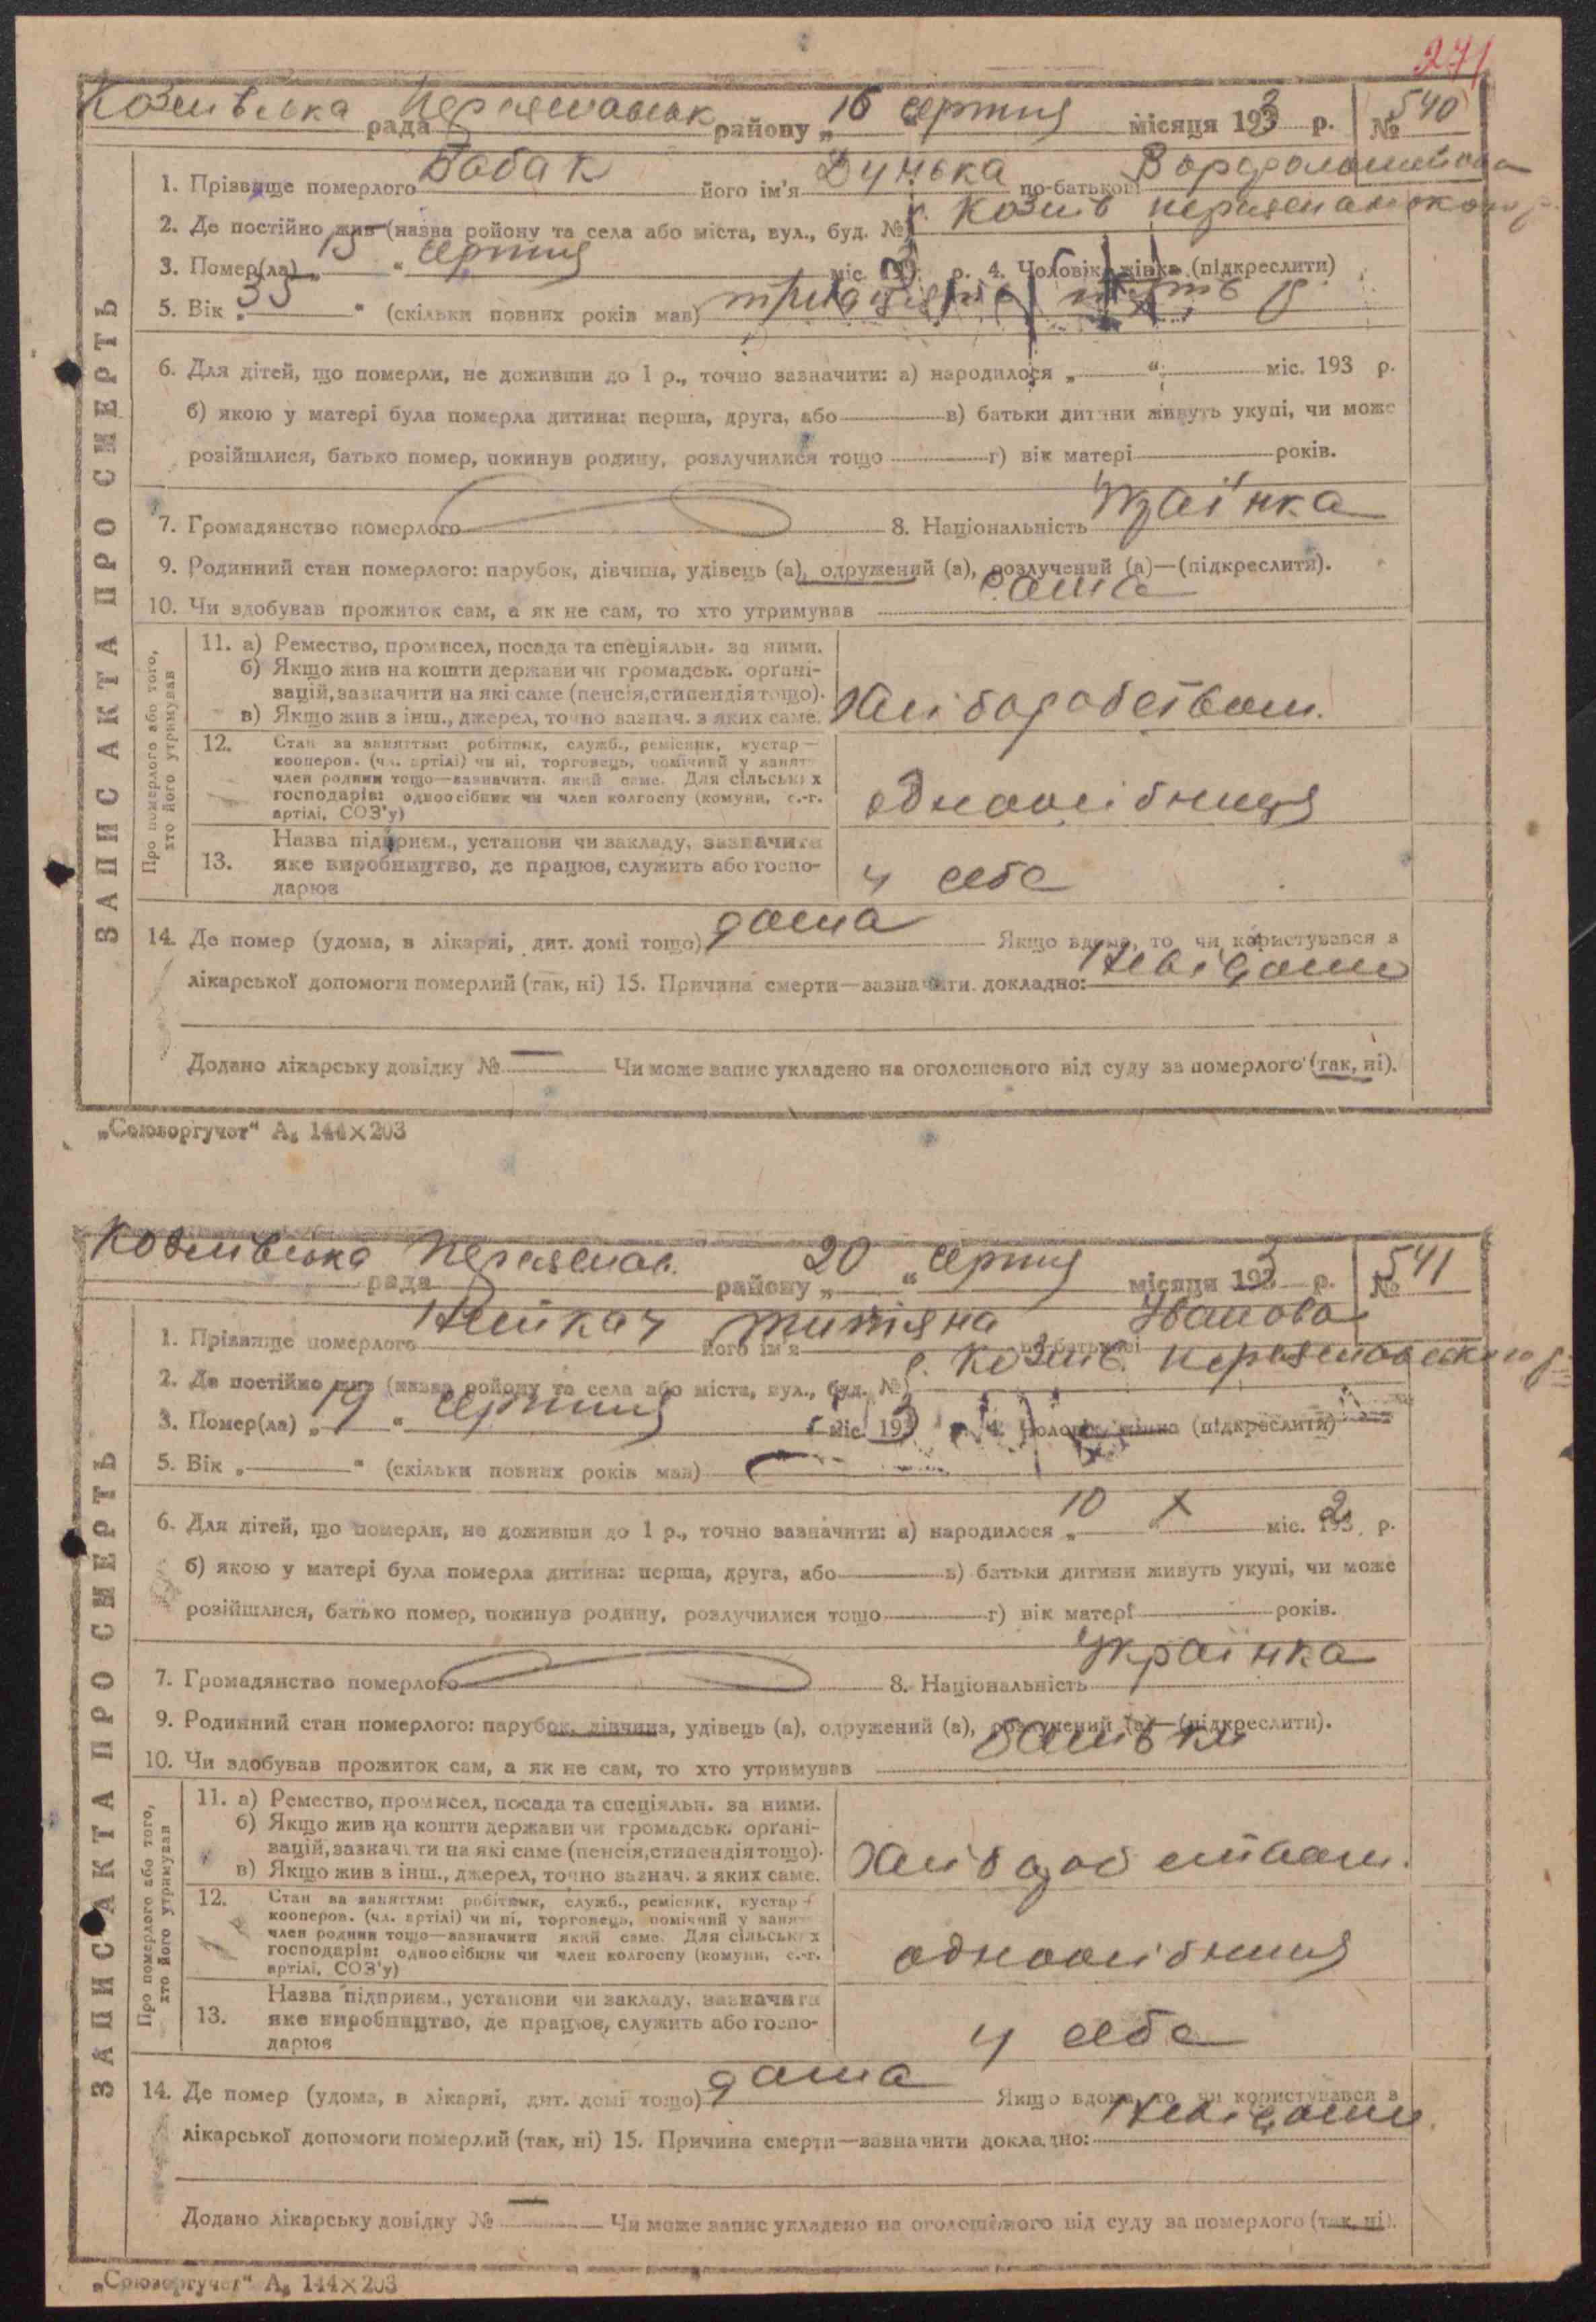 271
Козлівська рада Переяславськ району „ 16 " серпня місяця 1933 р. № 540
1. Прізвище померлого Бабак його ім'я Дунька по-батькові
2. Де постійно жив (назва ройону та села або міста, вул., буд. №) с. Козлів переяславського р.
3. Помер(ла) „ 15 " серпня міс. 193 р. 4. Чоловік, жінка (підкреслити)
5. Вік „ 35 " (скільки повних років мав) тридцять п'ять р.
6. Для дітей, що померли, не доживши до 1 р., точно зазначити: а) народилося „ " міс. 193 р.
б) якою у матері була померла дитина: перша, друга, або в) батьки дитини живуть укупі, чи може
розійшлися, батько помер, покинув родину, розлучилися тощо г) вік матері років.
7. Громадянство померлого 8. Національність Українка
9. Родинний стан померлого: парубок, дівчина, удівець (а), одружений (а), розлучений (а)—(підкреслити).
10. Чи здобував прожиток сам, а як не сам, то хто утримував сама
ЗАПИС АКТА ПРО СМЕРТЬ
Про померлого або того,
хто його утримував
11. а) Ремество, промисел, посада та спеціяльн. за ними.
б) Якщо жив на кошти держави чи громадськ. орґані-
зацій, зазначити на які саме (пенсія, стипендія тощо).
в) Якщо жив з інш., джерел, точно зазнач. з яких саме.
Хліборобством.
12. Стан за заняттям: робітник, служб., ремісник, кустар—
кооперов. (чл. артілі) чи ні, торговець, помічний у занят
член родини тощо—зазначити який саме. Для сільських
господарів: одноосібник чи член колгоспу (комуни, с.-г.
артілі, СОЗ'у)
одноосібниця
13. Назва підприєм., установи чи закладу, зазначити
яке виробництво, де працює, служить або госпо-
дарює
у себе
14. Де помер (удома, в лікарні, дит. домі тощо) дома Якщо вдома, то чи користувався з
лікарської допомоги померлий (так, ні) 15. Причина смерти—зазначити докладно: Невідомо
Додано лікарську довідку № — Чи може запис укладено на оголошеного від суду за померлого (так, ні).
„Союзоргучет" А₅ 144×203
Козлівська рада Переяслав. району „ 20 " серпня місяця 1933 р. № 541
1. Прізвище померлого його ім'я по-батькові Іванова
2. Де постійно жив (назва ройону та села або міста, вул., буд. №) с. Козлів. переяславського р.
3. Помер(ла) „ 19 " серпня міс. 1933 р. 4. Чоловік, жінка (підкреслити)
5. Вік „ " (скільки повних років мав)
6. Для дітей, що померли, не доживши до 1 р., точно зазначити: а) народилося „ 10 " X міс. 1932 р.
б) якою у матері була померла дитина: перша, друга, або в) батьки дитини живуть укупі, чи може
розійшлися, батько помер, покинув родину, розлучилися тощо г) вік матері років.
7. Громадянство померлого 8. Національність Українка
9. Родинний стан померлого: парубок, дівчина, удівець (а), одружений (а), розлучений (а)—(підкреслити).
10. Чи здобував прожиток сам, а як не сам, то хто утримував
ЗАПИС АКТА ПРО СМЕРТЬ
Про померлого або того,
хто його утримував
11. а) Ремество, промисел, посада та спеціяльн. за ними.
б) Якщо жив на кошти держави чи громадськ. орґані-
зацій, зазначити на які саме (пенсія, стипендія тощо).
в) Якщо жив з інш., джерел, точно зазнач. з яких саме.
12. Стан за заняттям: робітник, служб., ремісник, кустар—
кооперов. (чл. артілі) чи ні, торговець, помічний у занят
член родини тощо—зазначити який саме. Для сільських
господарів: одноосібник чи член колгоспу (комуни, с.-г.
артілі, СОЗ'у)
одноосібниця
13. Назва підприєм., установи чи закладу, зазначити
яке виробництво, де працює, служить або госпо-
дарює
у себе
14. Де помер (удома, в лікарні, дит. домі тощо) дома Якщо вдома, то чи користувався з
лікарської допомоги померлий (так, ні) 15. Причина смерти—зазначити докладно:
Додано лікарську довідку № — Чи може запис укладено на оголошеного від суду за померлого (так, ні).
„Союзоргучет" А₅ 144×203